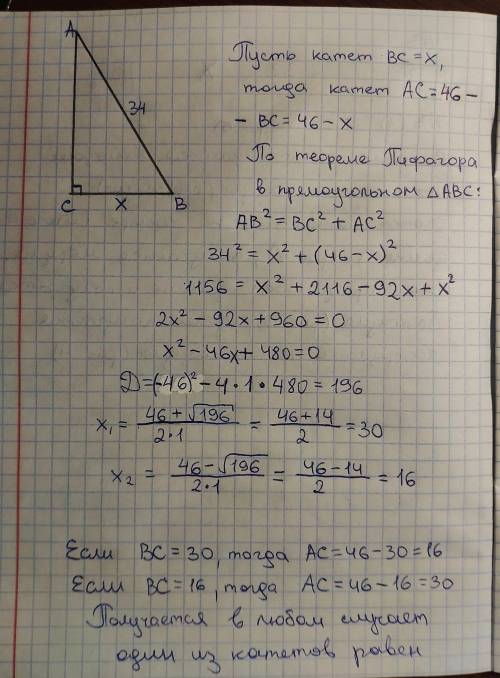 A
34
C
x
B
Пусть катет BC = x,
тогда катет AC = 46 -
- BC = 46 - x
По теореме Пифагора
в прямоугольном △ABC:
AB² = BC² + AC²
34² = x² + (46-x)²
1156 = x² + 2116 - 92x + x²
2x² - 92x + 960 = 0
x² - 46x + 480 = 0
D = (-46)² - 4 • 1 • 480 = 196
x₁ = (46 + √196)/(2·1) = (46+14)/2 = 30
x₂ = (46 - √196)/(2·1) = (46-14)/2 = 16
Если BC = 30, тогда AC = 46 - 30 = 16
Если BC = 16, тогда AC = 46 - 16 = 30
Получается в любом случает
один из катетов равен